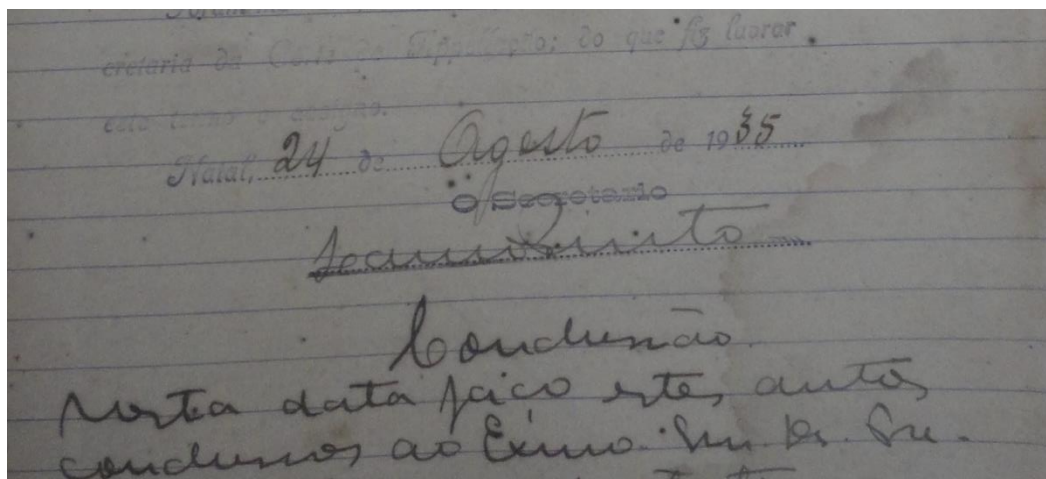 cretaria da Côrte de Appellação; do que fiz lavrar
este termo e assigno.
Natal, 24 de Agosto de 1935
O Secretario
Conclusão
Nesta data faço estes autos
conclusos ao Exmo. Snr. Dr. Su-